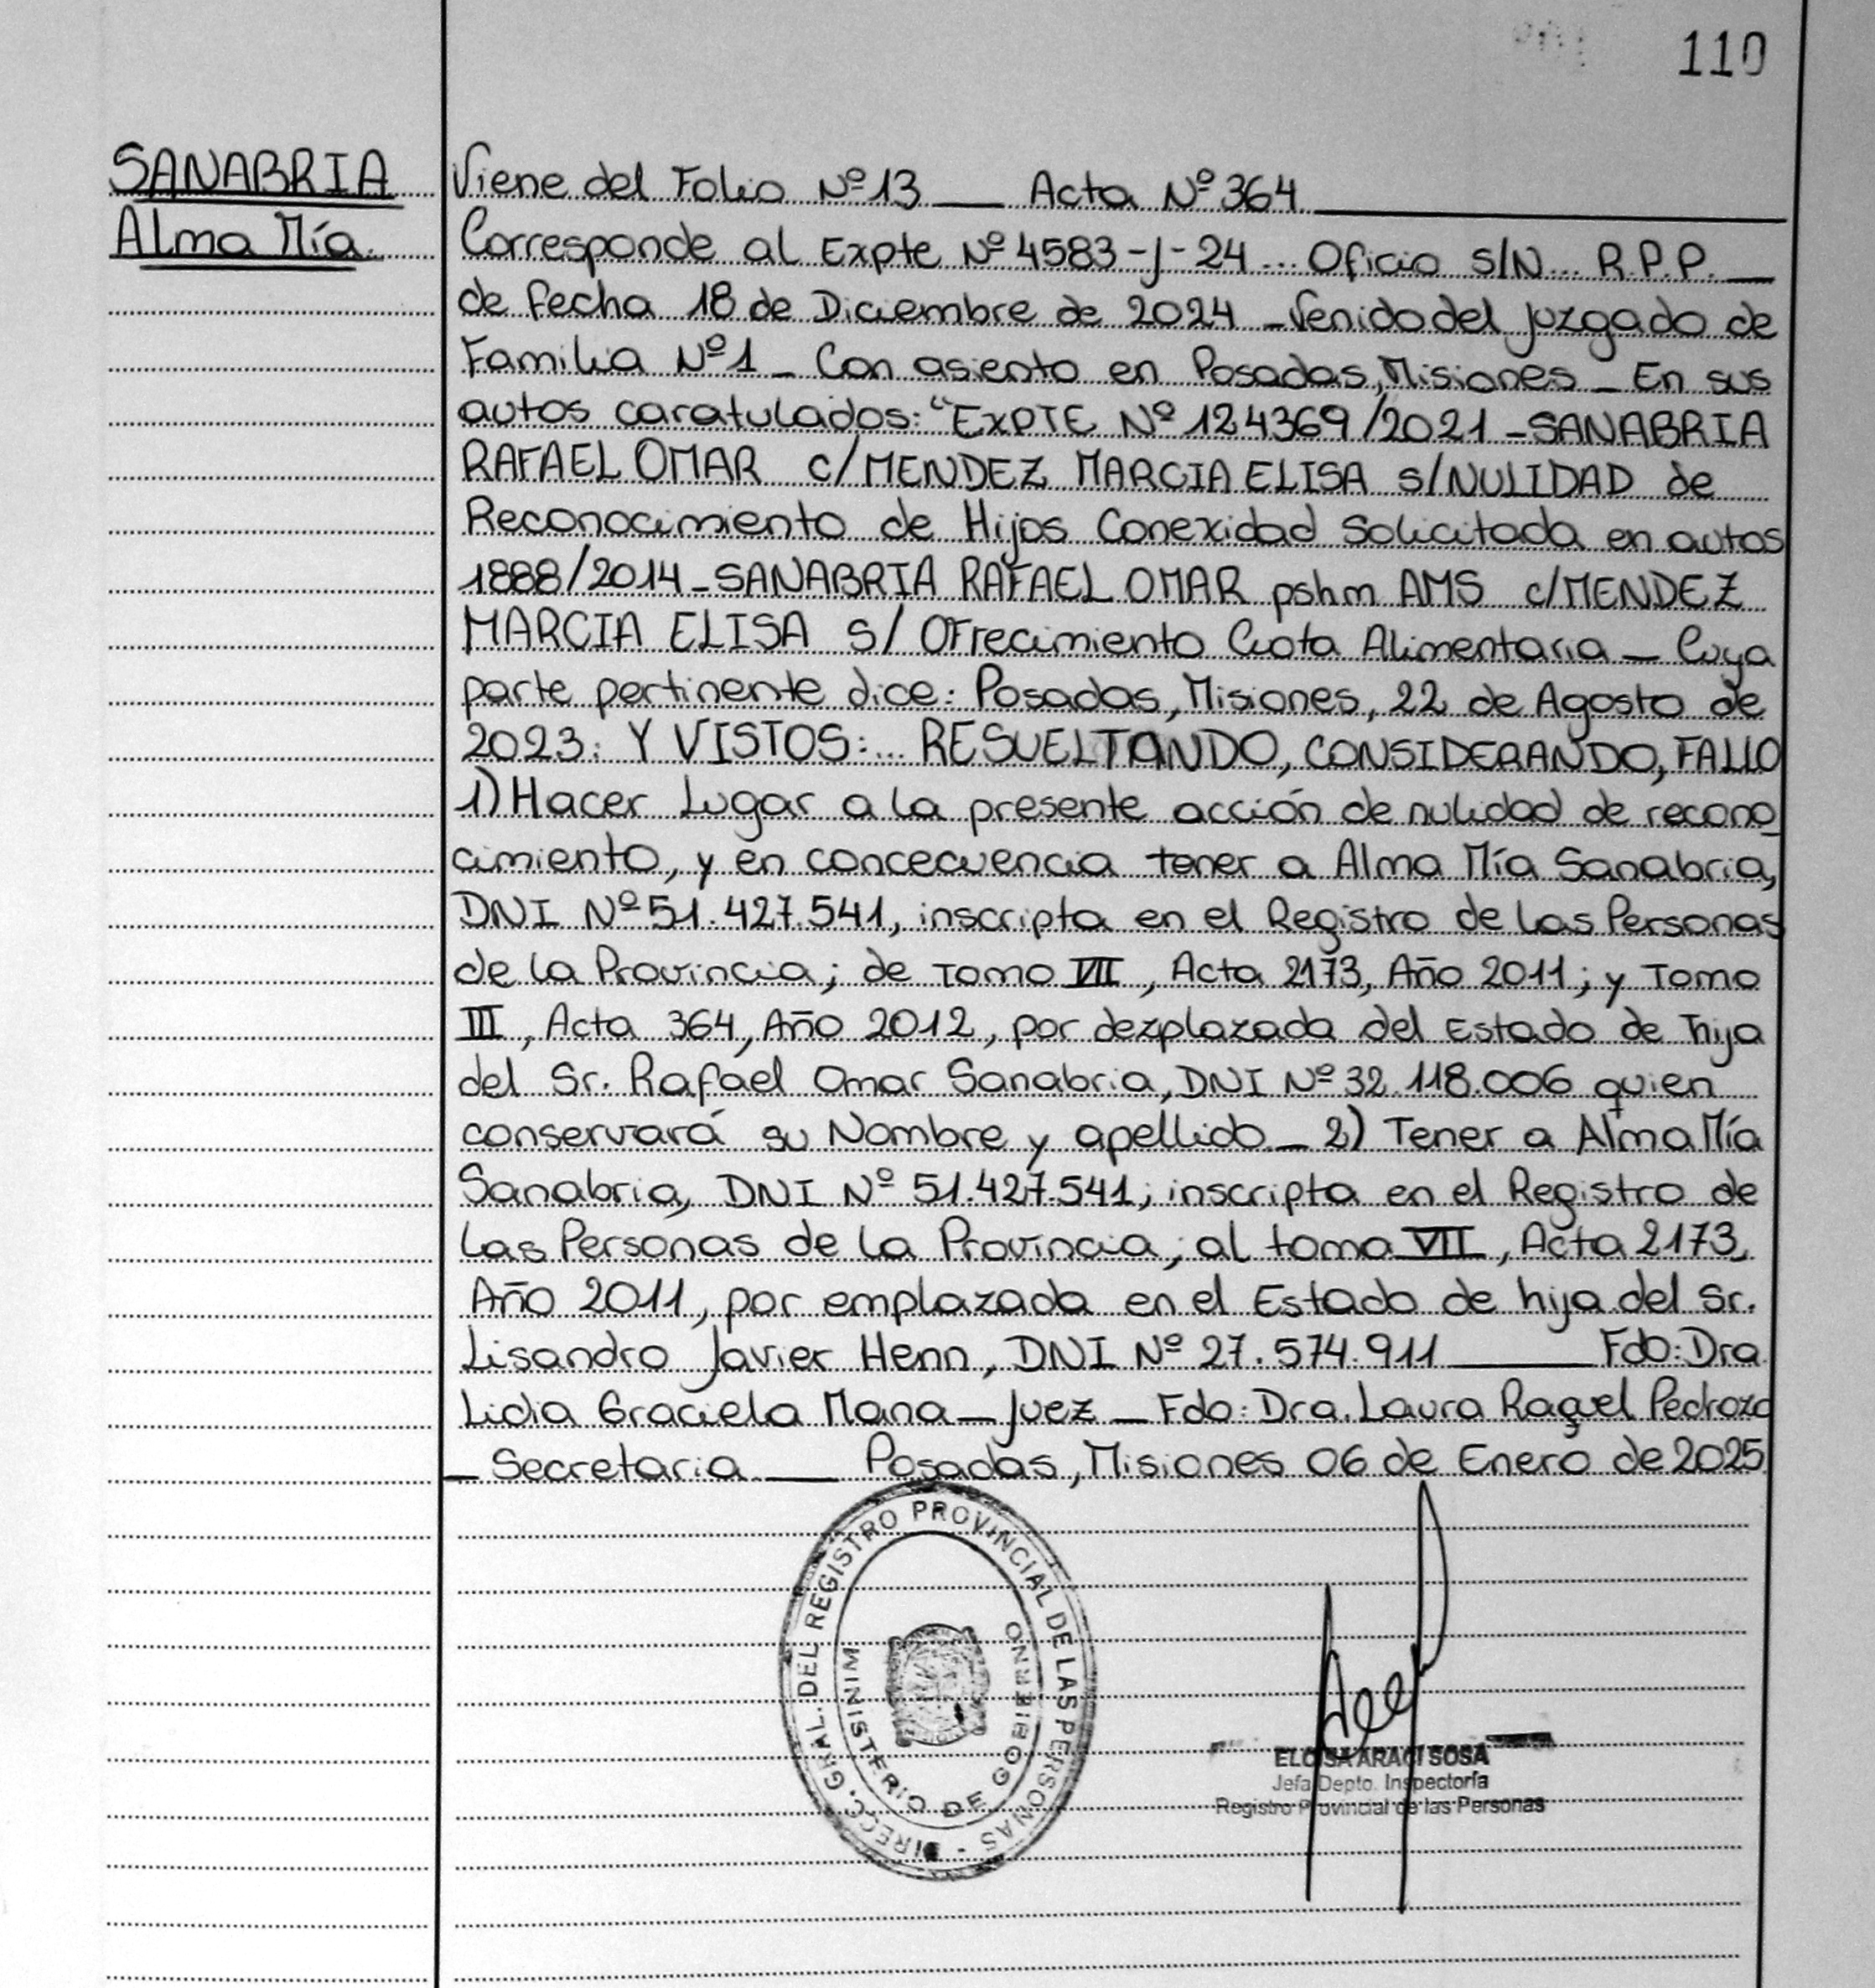 110
SANABRIA
Alma Mía.
Viene del Folio Nº 13 ___ Acta Nº 364
Corresponde al Expte Nº 4583-J-24... Oficio S/N... R.P.P. __
de fecha 18 de Diciembre de 2024 _ Venido del Juzgado de
Familia Nº 1 _ Con asiento en Posadas, Misiones _ En sus
autos caratulados: "EXPTE Nº 124369/2021 - SANABRIA
RAFAEL OMAR c/ MENDEZ MARCIA ELISA s/ NULIDAD de
Reconocimiento de Hijos Conexidad Solicitada en autos
1888/2014 - SANABRIA RAFAEL OMAR pshm AMS c/ MENDEZ
MARCIA ELISA s/ OFrecimiento Cuota Alimentaria _ Cuya
parte pertinente dice: Posadas, Misiones, 22 de Agosto de
2023: Y VISTOS:... RESUELTANDO, CONSIDERANDO, FALLO
1) Hacer Lugar a la presente acción de nulidad de recono_
cimiento, y en concecuencia tener a Alma Mía Sanabria,
DNI Nº 51.427.541, inscripta en el Registro de las Personas
de la Provincia; de Tomo VII, Acta 2173, Año 2011; y Tomo
III, Acta 364, Año 2012, por dezplazada del Estado de hija
del Sr. Rafael Omar Sanabria, DNI Nº 32.118.006 quien
conservará su Nombre y apellido. _ 2) Tener a Alma Mía
Sanabria, DNI Nº 51.427.541; inscripta en el Registro de
Las Personas de la Provincia; al tomo VII, Acta 2173,
Año 2011, por emplazada en el Estado de hija del Sr.
Lisandro Javier Henn, DNI Nº 27.574.911 ______ Fdo: Dra.
Lidia Graciela Mana _ Juez _ Fdo: Dra. Laura Raquel Pedrozo
_ Secretaria ___ Posadas, Misiones 06 de Enero de 2025
DIRECC. GRAL. DEL REGISTRO PROVINCIAL DE LAS PERSONAS -
MINISTERIO DE GOBIERNO
ELOISA ARACI SOSA
Jefa Depto. Inspectoría
Registro Provincial de las Personas